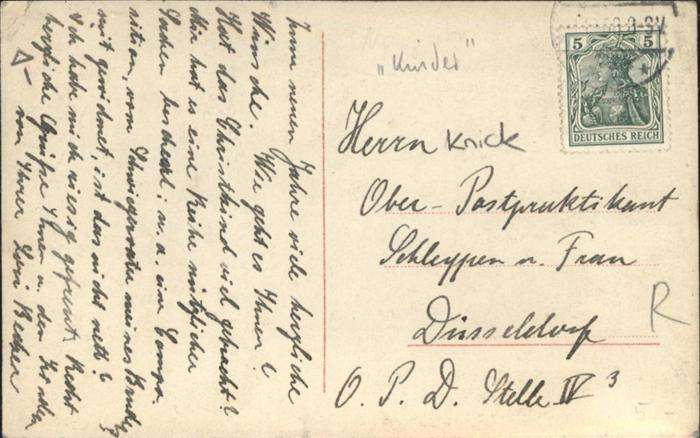 Zum neuen Jahre viele herzliche
Wünsche. Wie geht es Ihnen?
Hat das Christkind viel gebracht?
Mir hat es eine Reihe nützlicher
Sachen beschert; u. a. eine Compo-
sition, vom Schwiegervater meines Bruders
mir gewidmet, ist das nicht nett?
Ich habe mich riesig gefreut. Recht
herzliche Grüße Ihnen u. den
von Ihrer Becker
"Kinder"
5 5
DEUTSCHES REICH
Herrn Knick
Ober-Postpraktikant
Schleypen u. Frau
Düsseldorf
O. P. D. Stelle IV 3
R